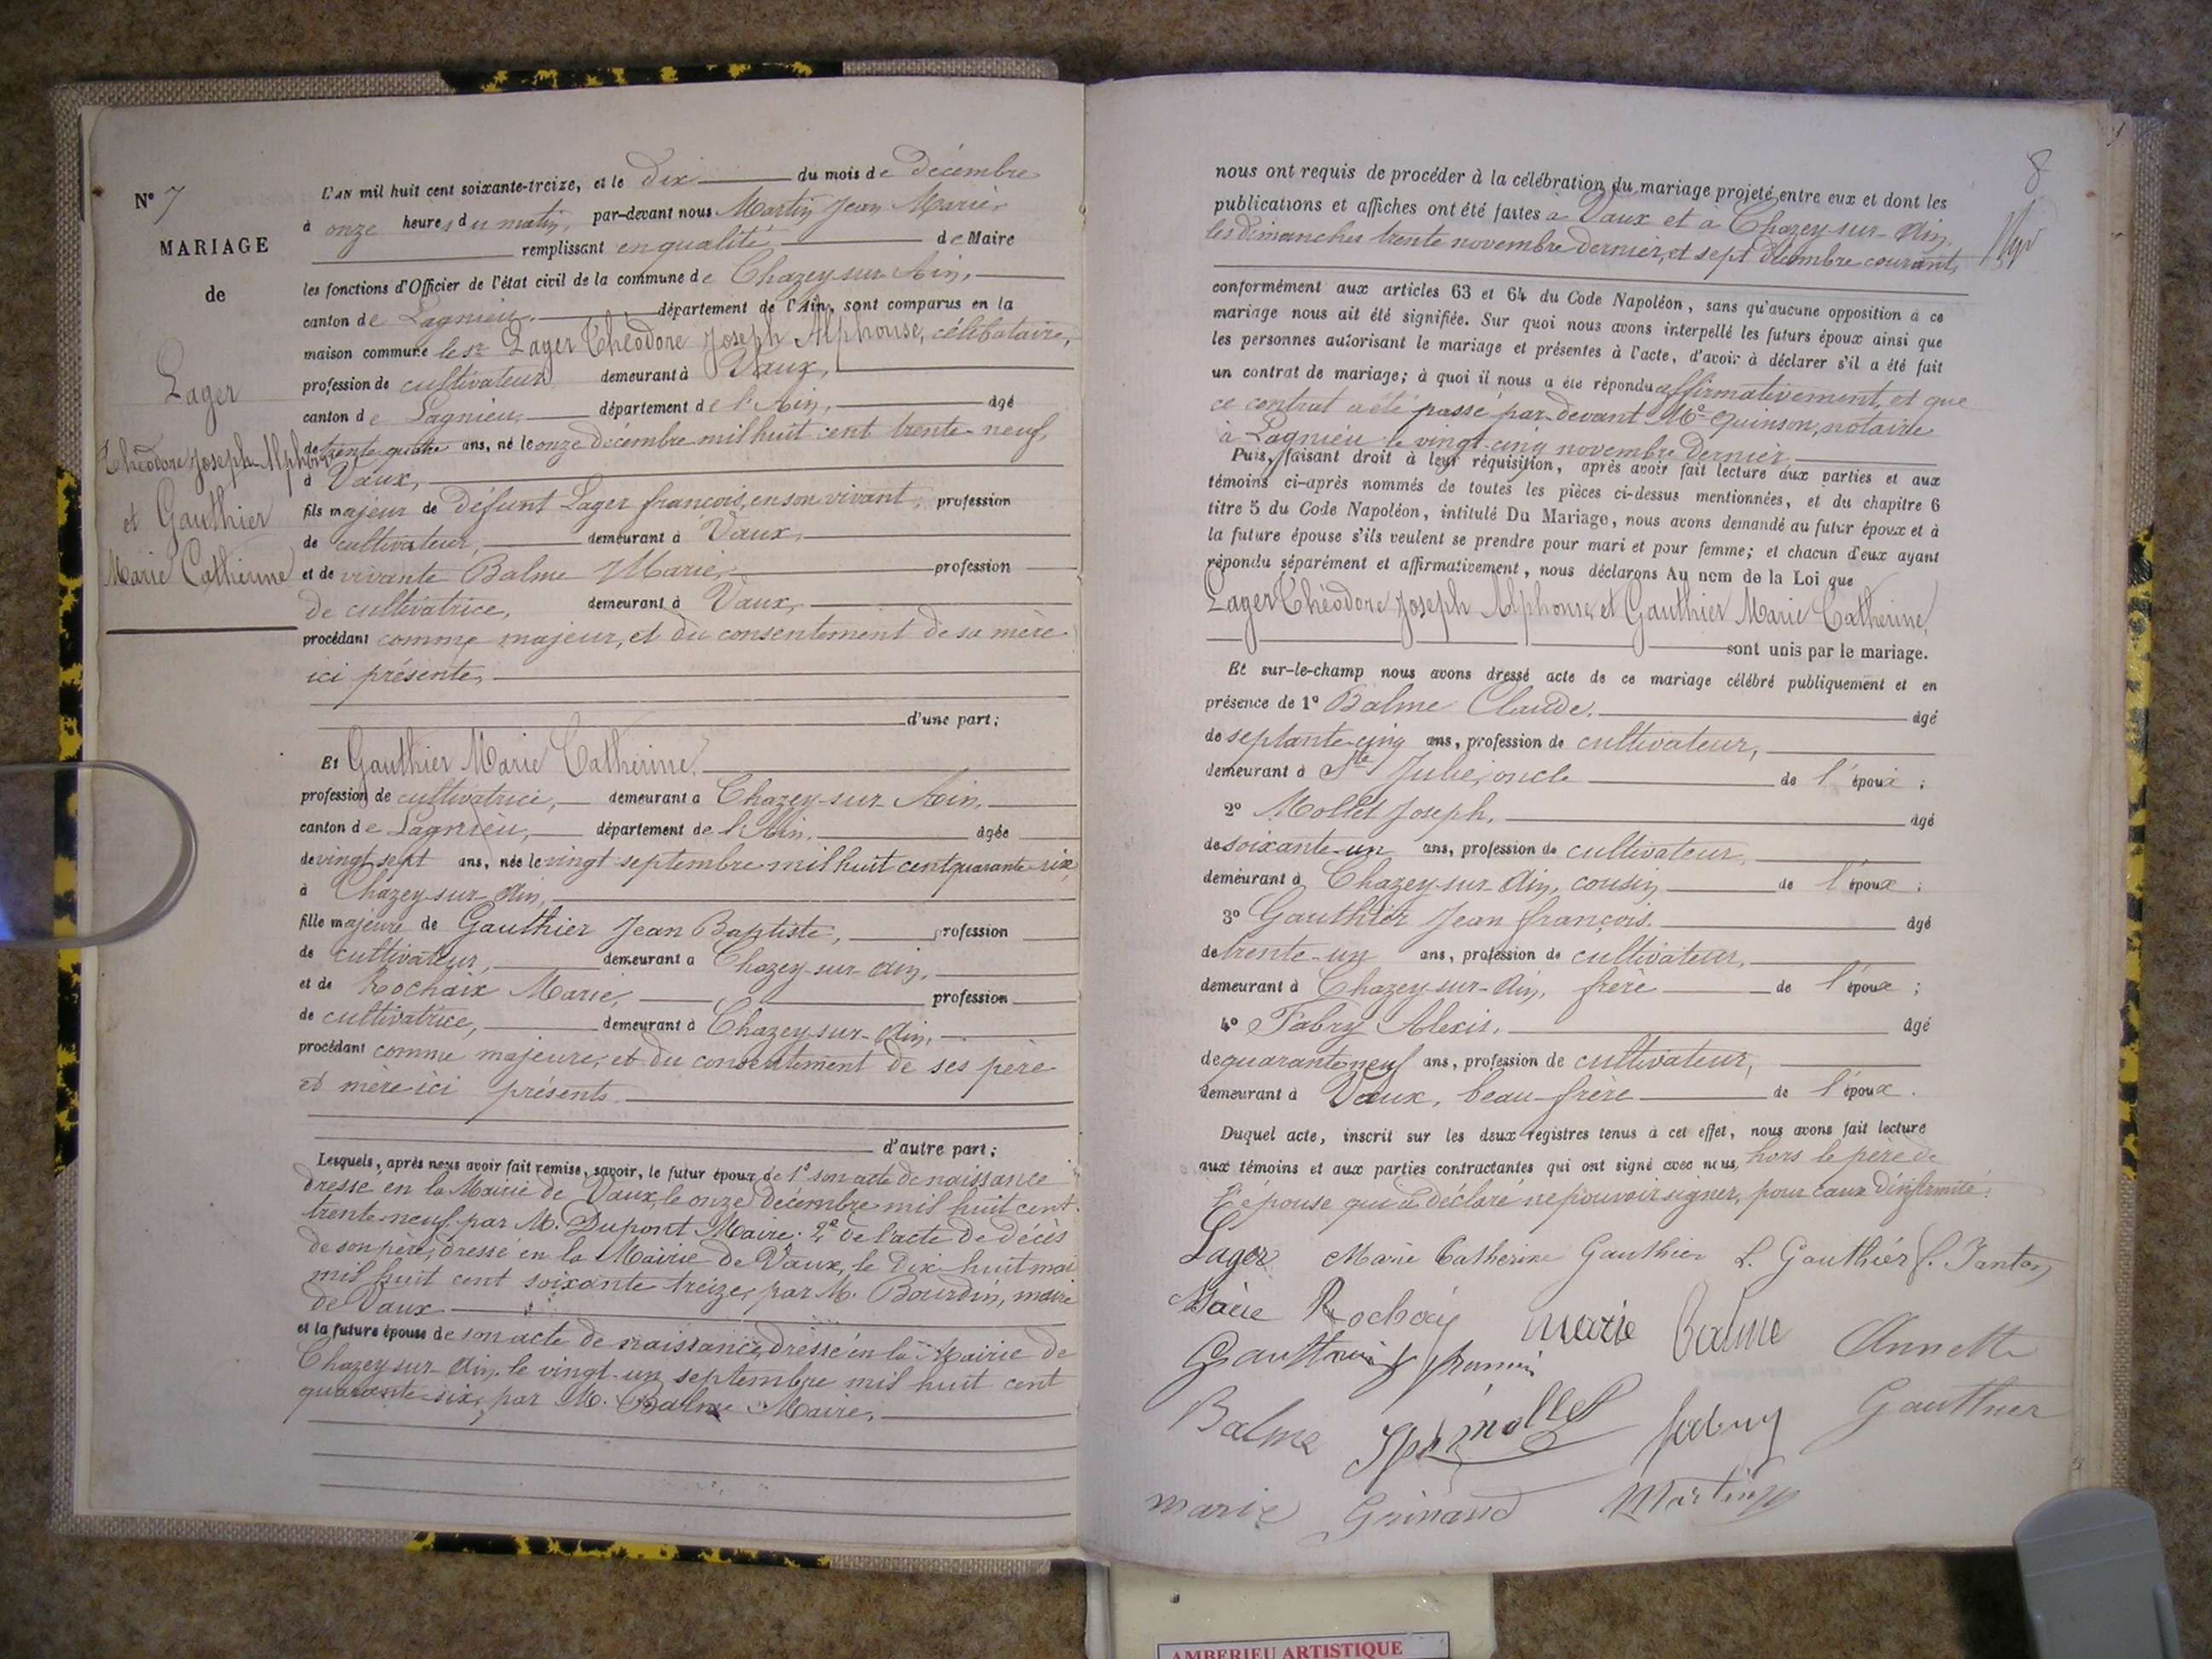 N° 7
MARIAGE
de
Lager
Théodore Joseph Alphonse
et Gauthier
Marie Catherine
L'AN mil huit cent soixante-treize, et le dix du mois de décembre
à onze heures du matin, par-devant nous Martin Jean Marie,
remplissant en qualité de Maire
les fonctions d'Officier de l'état civil de la commune de Chazey-sur-Ain,
canton de Lagnieu, département de l'Ain, sont comparus en la
maison commune le sr Lager Théodore Joseph Alphonse, célibataire,
profession de cultivateur, demeurant à Vaux,
canton de Lagnieu, département de l'Ain, âgé
de trente-quatre ans, né le onze décembre mil huit cent trente-neuf,
à Vaux,
fils majeur de défunt Lager françois, en son vivant, profession
de cultivateur, demeurant à Vaux,
et de vivante Balme Marie, profession
de cultivatrice, demeurant à Vaux,
procédant comme majeur, et du consentement de sa mère
ici présente,
d'une part;
Et Gauthier Marie Catherine,
profession de cultivatrice, demeurant a Chazey-sur-Ain,
canton de Lagnieu, département de l'Ain, âgée
de vingt-sept ans, née le vingt septembre mil huit cent quarante-six,
à Chazey-sur-Ain,
fille majeure de Gauthier Jean Baptiste, profession
de cultivateur, demeurant a Chazey-sur-Ain,
et de Rochaix Marie, profession
de cultivatrice, demeurant à Chazey-sur-Ain,
procédant comme majeure, et du consentement de ses père
et mère ici présents.
d'autre part;
Lesquels, après nous avoir fait remise, savoir, le futur époux de 1° son acte de naissance
dressé en la Mairie de Vaux, le onze décembre mil huit cent
trente-neuf, par M. Dupont Maire. 2° de l'acte de décès
de son père, dressé en la Mairie de Vaux, le dix-huit mai
mil huit cent soixante treize, par M. Bourdin, maire
de Vaux
et la future épouse de son acte de naissance, dressé en la Mairie de
Chazey-sur-Ain, le vingt-un septembre mil huit cent
quarante-six, par M. Balme Maire,
8
nous ont requis de procéder à la célébration du mariage projeté entre eux et dont les
publications et affiches ont été faites à Vaux et à Chazey-sur-Ain,
les dimanches trente novembre dernier, et sept décembre courant,
conformément aux articles 63 et 64 du Code Napoléon, sans qu'aucune opposition à ce
mariage nous ait été signifiée. Sur quoi nous avons interpellé les futurs époux ainsi que
les personnes autorisant le mariage et présentes à l'acte, d'avoir à déclarer s'il a été fait
un contrat de mariage; à quoi il nous a été répondu affirmativement, et que
ce contrat a été passé par-devant Me Quinson, notaire
à Lagnieu le vingt-cinq novembre dernier.
Puis, faisant droit à leur réquisition, après avoir fait lecture aux parties et aux
témoins ci-après nommés de toutes les pièces ci-dessus mentionnées, et du chapitre 6
titre 5 du Code Napoléon, intitulé Du Mariage, nous avons demandé au futur époux et à
la future épouse s'ils veulent se prendre pour mari et pour femme; et chacun d'eux ayant
répondu séparément et affirmativement, nous déclarons Au nom de la Loi que
Lager Théodore Joseph Alphonse, et Gauthier Marie Catherine,
sont unis par le mariage.
Et sur-le-champ nous avons dressé acte de ce mariage célébré publiquement et en
présence de 1° Balme Claude, âgé
de septante-cinq ans, profession de cultivateur,
demeurant à Ste Julie, oncle de l'époux;
2° Mollet Joseph, âgé
de soixante-un ans, profession de cultivateur,
demeurant à Chazey-sur-Ain, cousin de l'épouse;
3° Gauthier Jean françois, âgé
de trente-un ans, profession de cultivateur,
demeurant à Chazey-sur-Ain, frère de l'épouse;
4° Fabry Alexis, âgé
de quarante-neuf ans, profession de cultivateur,
demeurant à Vaux, beau-frère de l'époux.
Duquel acte, inscrit sur les deux registres tenus à cet effet, nous avons fait lecture
aux témoins et aux parties contractantes qui ont signé avec nous, hors le père de
l'épouse qui a déclaré ne pouvoir signer, pour cause d'infirmité.
Lager Marie Catherine Gauthier L. Gauthier f. Janton
Marie Rochaix marie Balme Annette
Gauthier
Balme mollet fabry Gauthier
marie Grinand Martin
AMBERIEU ARTISTIQUE